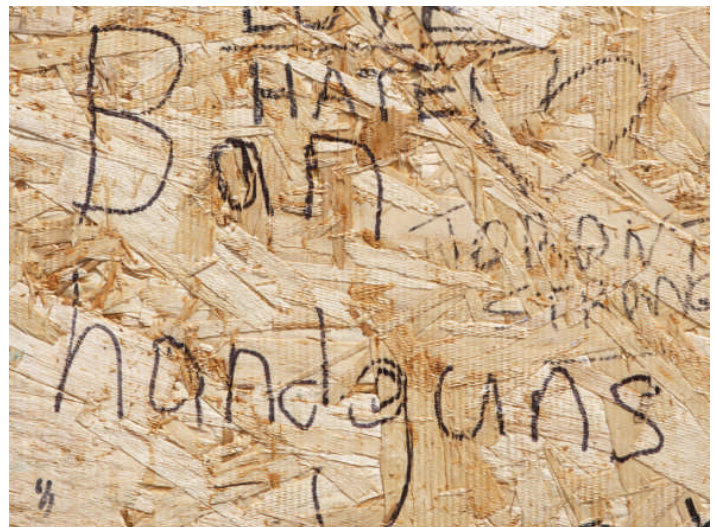 LOVE
HATE
Ban
TORONT
STRONG
handguns